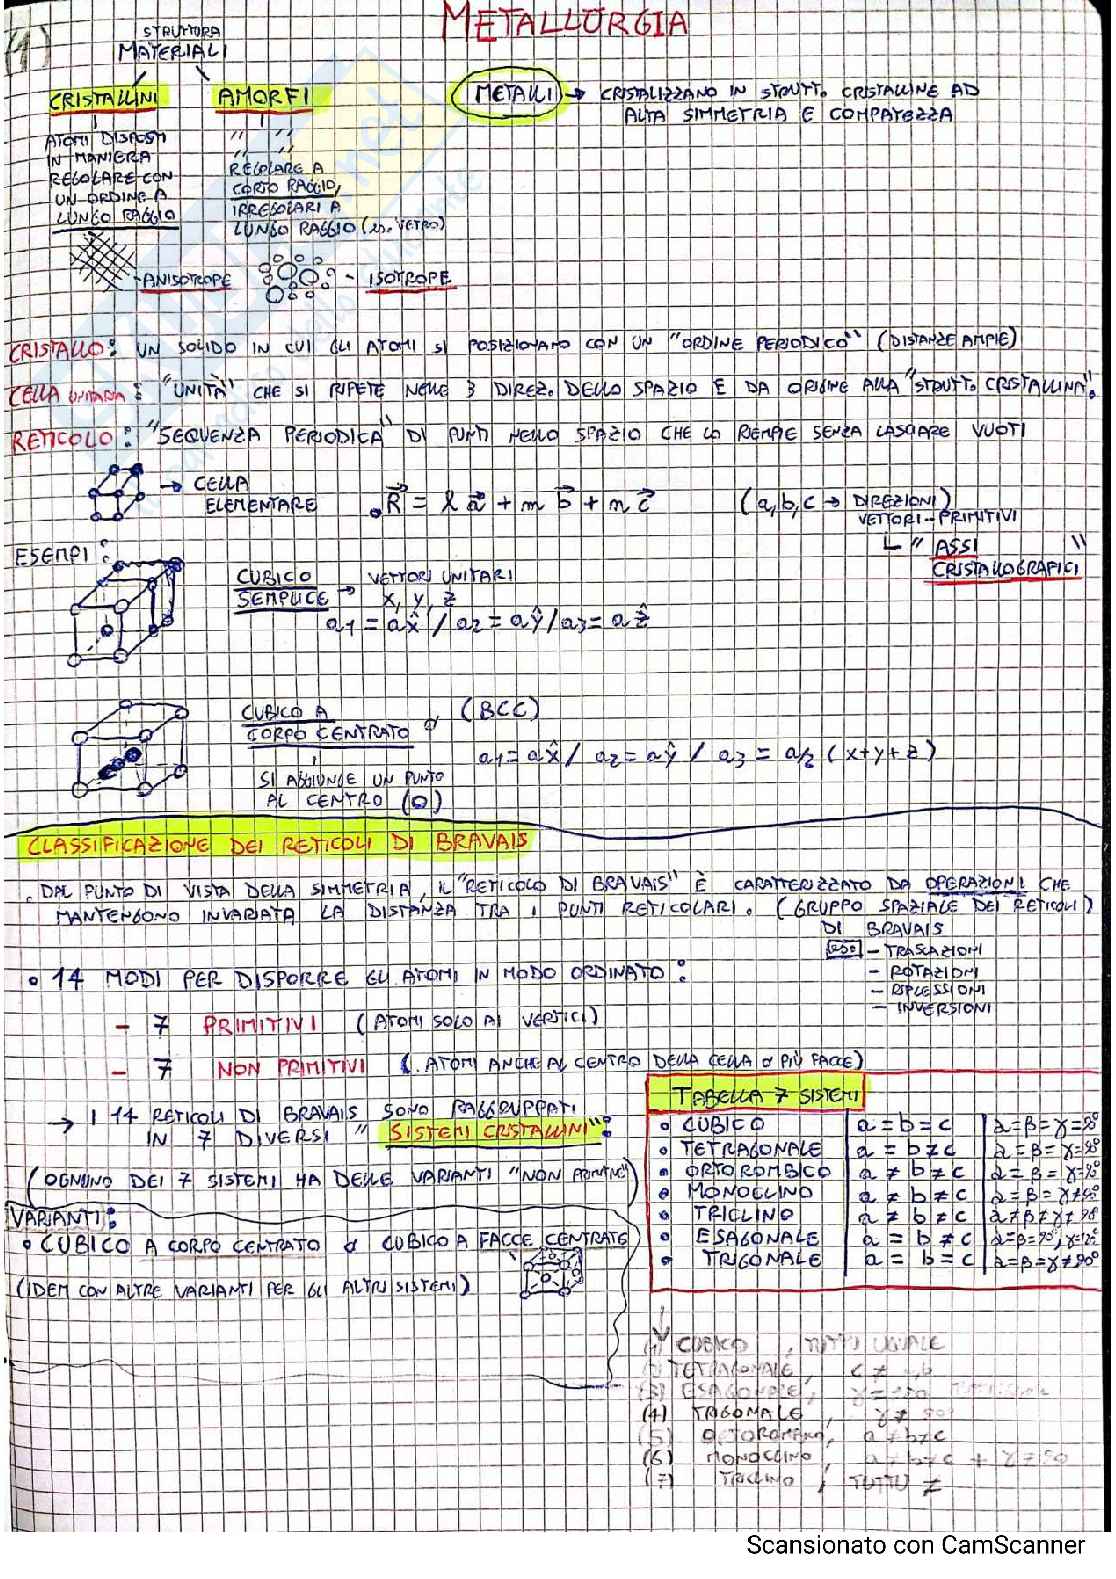 METALLURGIA
(1)
STRUTTURA
MATERIALI
CRISTALLINI
AMORFI
METALLI → CRISTALIZZANO IN STRUTT. CRISTALLINE AD
ALTA SIMMETRIA E COMPATEZZA
ATOMI DISPOSTI
IN MANIERA
REGOLARE CON
UN ORDINE A
LUNGO RAGGIO
" "
" "
REGOLARE A
CORTO RAGGIO,
IRREGOLARI A
LUNGO RAGGIO (es. VETRO)
- ANISOTROPE
- ISOTROPE
CRISTALLO: UN SOLIDO IN CUI GLI ATOMI SI POSIZIONANO CON UN "ORDINE PERIODICO" (DISTANZE AMPIE)
CELLA UNITARIA: "UNITÀ" CHE SI RIPETE NELLE 3 DIREZ. DELLO SPAZIO E DA ORIGINE ALLA "STRUTT. CRISTALLINA".
RETICOLO: "SEQUENZA PERIODICA" DI PUNTI NELLO SPAZIO CHE LO RIEMPIE SENZA LASCIARE VUOTI
→ CELLA
ELEMENTARE
. R = l a + m b + n c
(a, b, c → DIREZIONI)
VETTORI-PRIMITIVI
↳ " ASSI "
CRISTALLOGRAFICI
ESEMPI:
CUBICO
SEMPLICE → VETTORI UNITARI
x, y, z
a1 = a x̂ / a2 = a ŷ / a3 = a ẑ
CUBICO A
CORPO CENTRATO
(BCC)
a1 = a x̂ / a2 = a ŷ / a3 = a/2 (x+y+z)
SI AGGIUNGE UN PUNTO
AL CENTRO (O)
CLASSIFICAZIONE DEI RETICOLI DI BRAVAIS
. DAL PUNTO DI VISTA DELLA SIMMETRIA, IL "RETICOLO DI BRAVAIS" È CARATTERIZZATO DA OPERAZIONI CHE
MANTENGONO INVARIATA LA DISTANZA TRA I PUNTI RETICOLARI. (GRUPPO SPAZIALE DEI RETICOLI)
DI BRAVAIS
- TRASLAZIONI
- ROTAZIONI
- RIFLESSIONI
- INVERSIONI
• 14 MODI PER DISPORRE GLI ATOMI IN MODO ORDINATO:
- 7 PRIMITIVI (ATOMI SOLO AI VERTICI)
- 7 NON PRIMITIVI (ATOMI ANCHE AL CENTRO DELLA CELLA O PIÙ FACCE)
→ I 14 RETICOLI DI BRAVAIS SONO RAGGRUPPATI
IN 7 DIVERSI "SISTEMI CRISTALLINI":
(OGNUNO DEI 7 SISTEMI HA DELLE VARIANTI "NON PRIMITIVE")
VARIANTI:
• CUBICO A CORPO CENTRATO o CUBICO A FACCE CENTRATE
(IDEM CON ALTRE VARIANTI PER GLI ALTRI SISTEMI)
TABELLA 7 SISTEMI
• CUBICO a = b = c α=β=γ=90°
• TETRAGONALE a = b ≠ c α=β=γ=90°
• ORTOROMBICO a ≠ b ≠ c α=β=γ=90°
• MONOCLINO a ≠ b ≠ c α=β=γ≠90°
• TRICLINO a ≠ b ≠ c α≠β≠γ≠90°
• ESAGONALE a = b ≠ c α=β=90°, γ=120°
• TRIGONALE a = b = c α=β=γ≠90°
(1) CUBICO, TUTTI UGUALE
TETRAGONALE, c ≠ a,b
(3) ESAGONALE,
(4) TRIGONALE, γ ≠ 90°
(5) ORTOROMBICO, a ≠ b ≠ c
(6) MONOCLINO, a ≠ b ≠ c + γ ≠ 90
(7) TRICLINO, TUTTO ≠
Scansionato con CamScanner